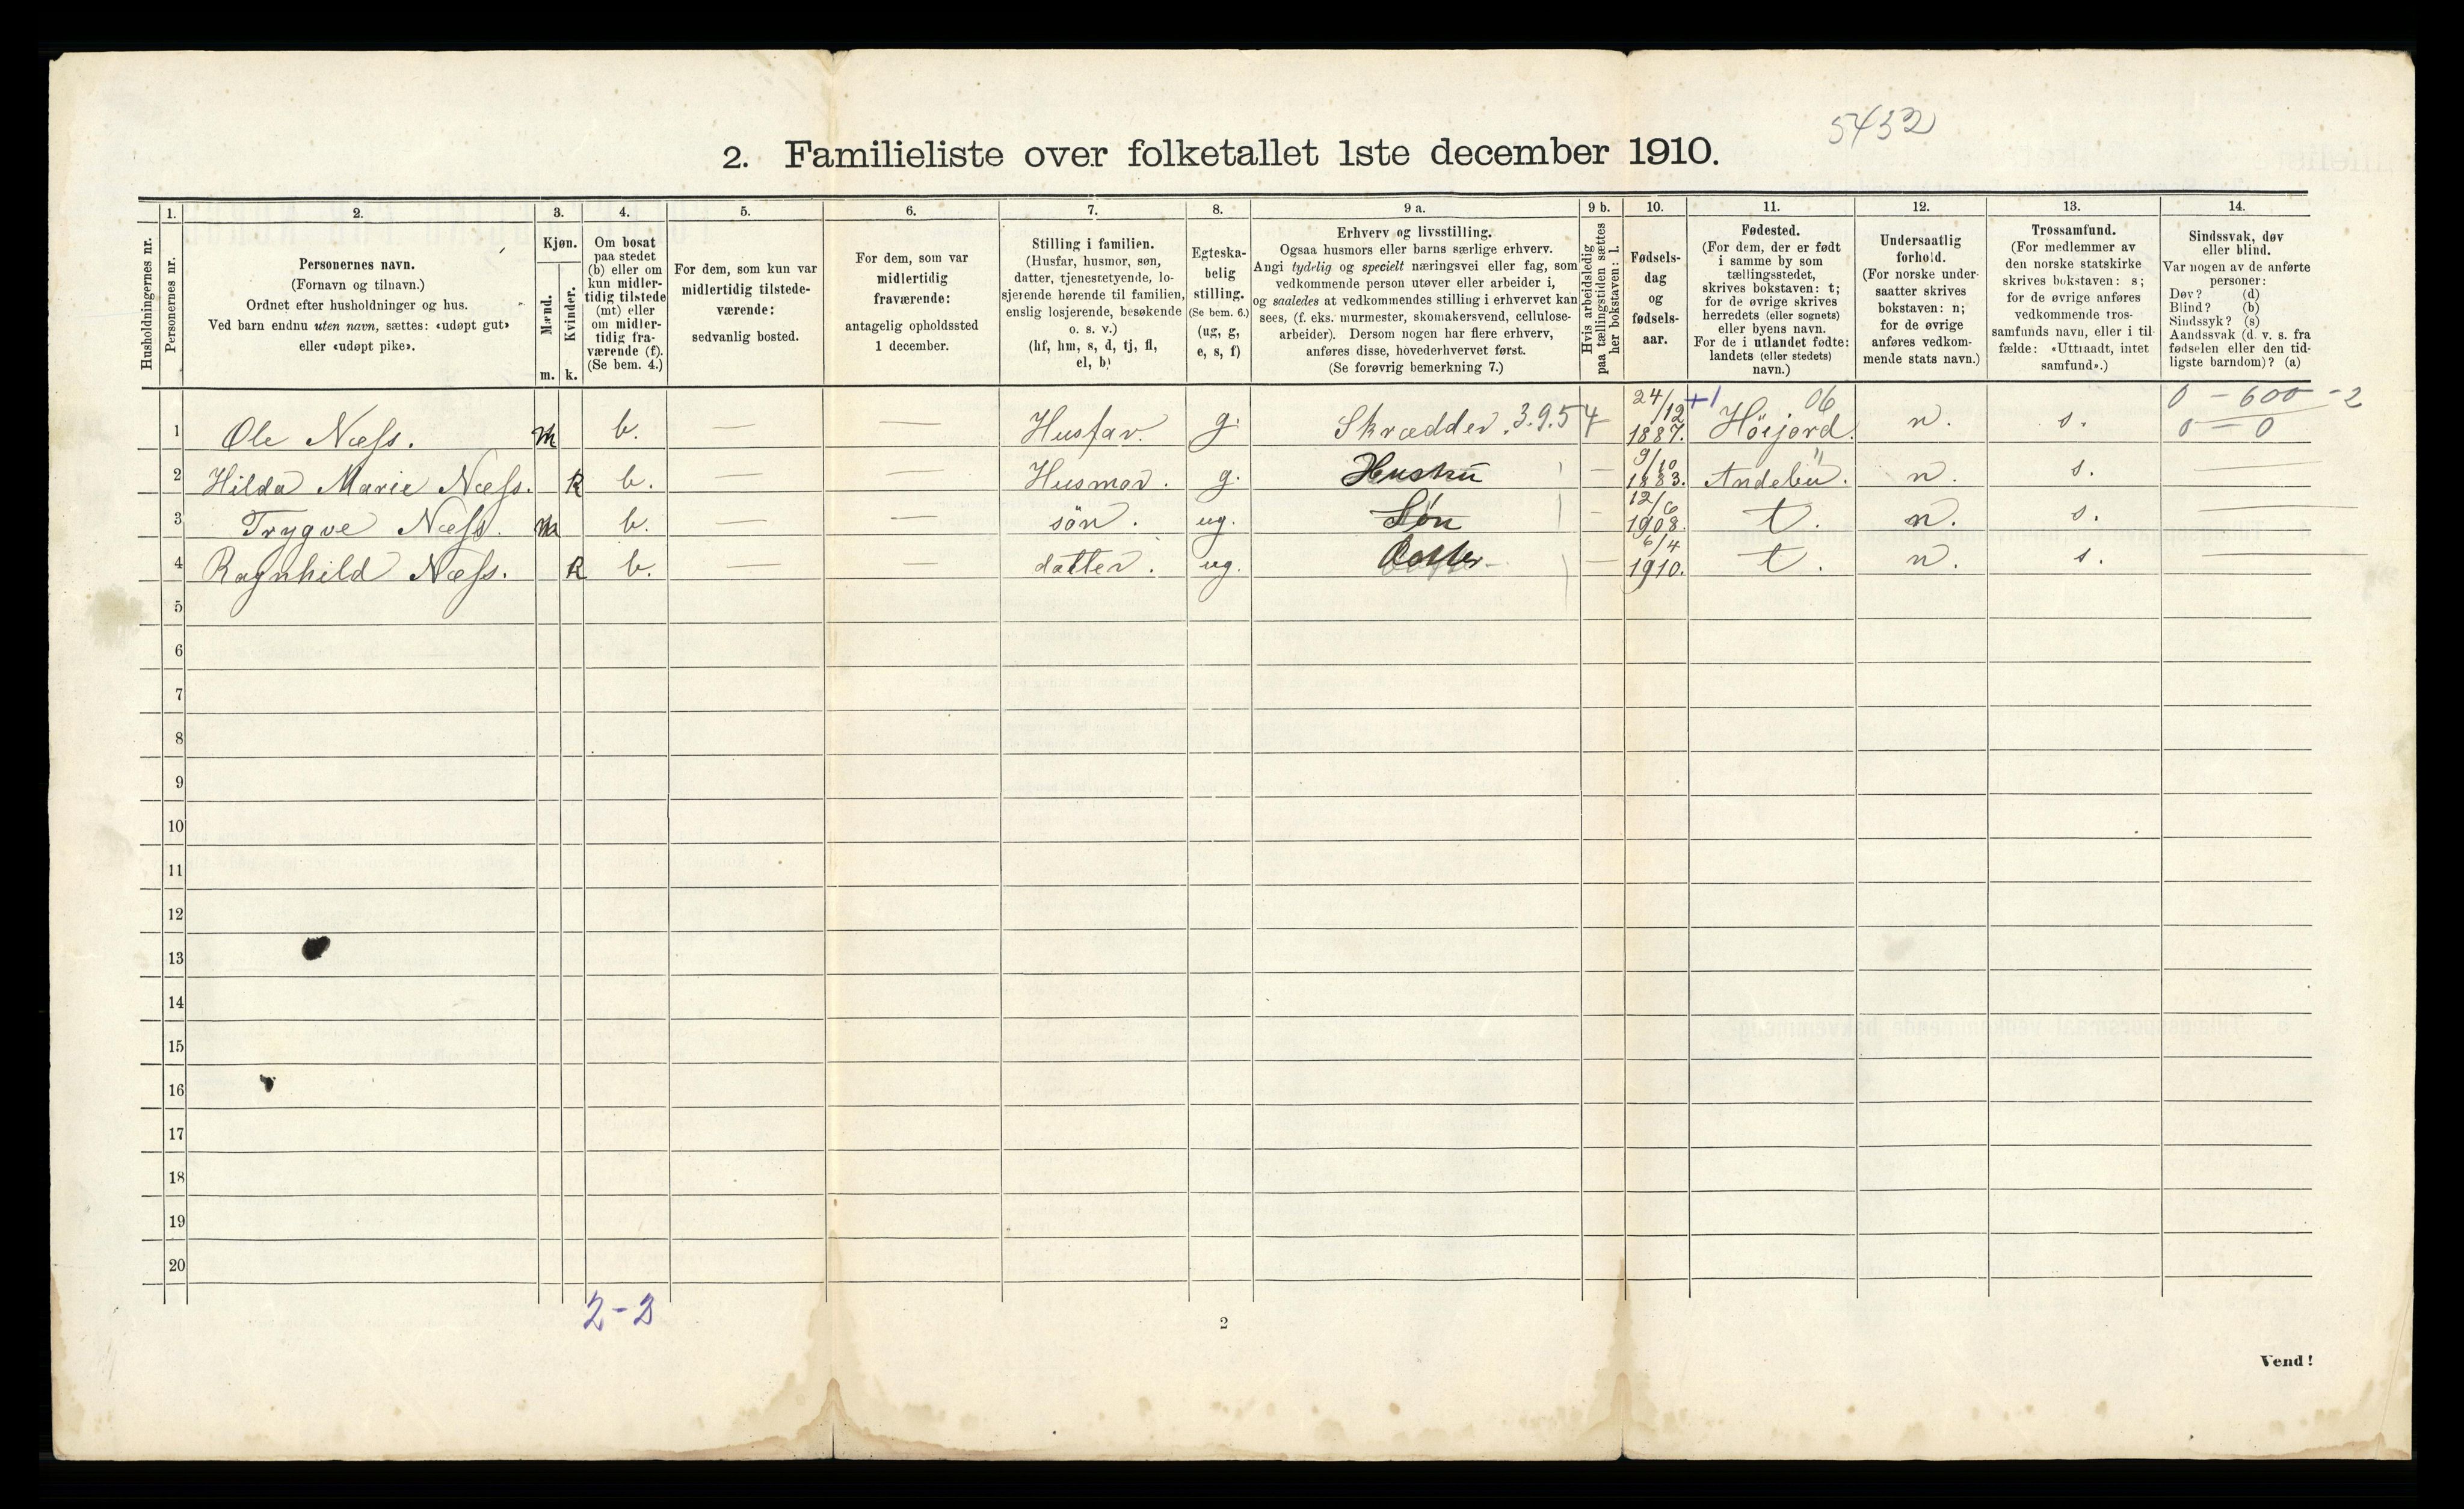 5432
2. Familieliste over folketallet 1ste december 1910.
Husholdningernes nr.
1.
Personernes nr.
2.
Personernes navn.
(Fornavn og tilnavn.)
Ordnet efter husholdninger og hus.
Ved barn endnu uten navn, sættes: «udøpt gut»
eller «udøpt pike».
3.
Kjøn.
Mænd.
m.
Kvinder.
k.
4.
Om bosat
paa stedet
(b) eller om
kun midler-
tidig tilstede
(mt) eller
om midler-
tidig fra-
værende (f).
(Se bem. 4.)
5.
For dem, som kun var
midlertidig tilstede-
værende:
sedvanlig bosted.
6.
For dem, som var
midlertidig
fraværende:
antagelig opholdssted
1 december.
7.
Stilling i familien.
(Husfar, husmor, søn,
datter, tjenestetyende, lo-
sjerende hørende til familien,
enslig losjerende, besøkende
o. s. v.)
(hf, hm, s, d, tj, fl,
el, b)
8.
Egteska-
belig
stilling.
(Se bem. 6.)
(ug, g,
e, s, f)
9 a.
Erhverv og livsstilling.
Ogsaa husmors eller barns særlige erhverv.
Angi tydelig og specielt næringsvei eller fag, som
vedkommende person utøver eller arbeider i,
og saaledes at vedkommendes stilling i erhvervet kan
sees, (f. eks. murmester, skomakersvend, cellulose-
arbeider). Dersom nogen har flere erhverv,
anføres disse, hovederhvervet først.
(Se forøvrig bemerkning 7.)
9 b.
Hvis arbeidsledig
paa tællingstiden sættes
her bokstaven: l.
10.
Fødsels-
dag
og
fødsels-
aar.
11.
Fødested.
(For dem, der er født
i samme by som
tællingsstedet,
skrives bokstaven: t;
for de øvrige skrives
herredets (eller sognets)
eller byens navn.
For de i utlandet fødte:
landets (eller stedets)
navn.)
12.
Undersaatlig
forhold.
(For norske under-
saatter skrives
bokstaven: n;
for de øvrige
anføres vedkom-
mende stats navn.)
13.
Trossamfund.
(For medlemmer av
den norske statskirke
skrives bokstaven: s;
for de øvrige anføres
vedkommende tros-
samfunds navn, eller i til-
fælde: «Uttraadt, intet
samfund».)
14.
Sindssvak, døv
eller blind.
Var nogen av de anførte
personer:
Døv? (d)
Blind? (b)
Sindssyk? (s)
Aandssvak (d. v. s. fra
fødselen eller den tid-
ligste barndom)? (a)
1 Ole Næss. m b. — — Husfar. g. Skrædder. 3.9.54 — 24/12 1887. +1 Høijord. 06 n. s. 0 - 600 - 2
0 - 0
2 Hilda Marie Næss. k b. — — Husmor. g. Hustru — 9/10 1883. Andebu. " n. s. —
3 Trygve Næss. m b. — — søn. ug. Søn — 12/6 1908. t. n. s. —
4 Ragnhild Næss. k b. — — datter. ug. Datter — 6/4 1910. t. n. s. —
5
6
7
8
9
10
11
12
13
14
15
16
17
18
19
20
2-2
2
Vend!